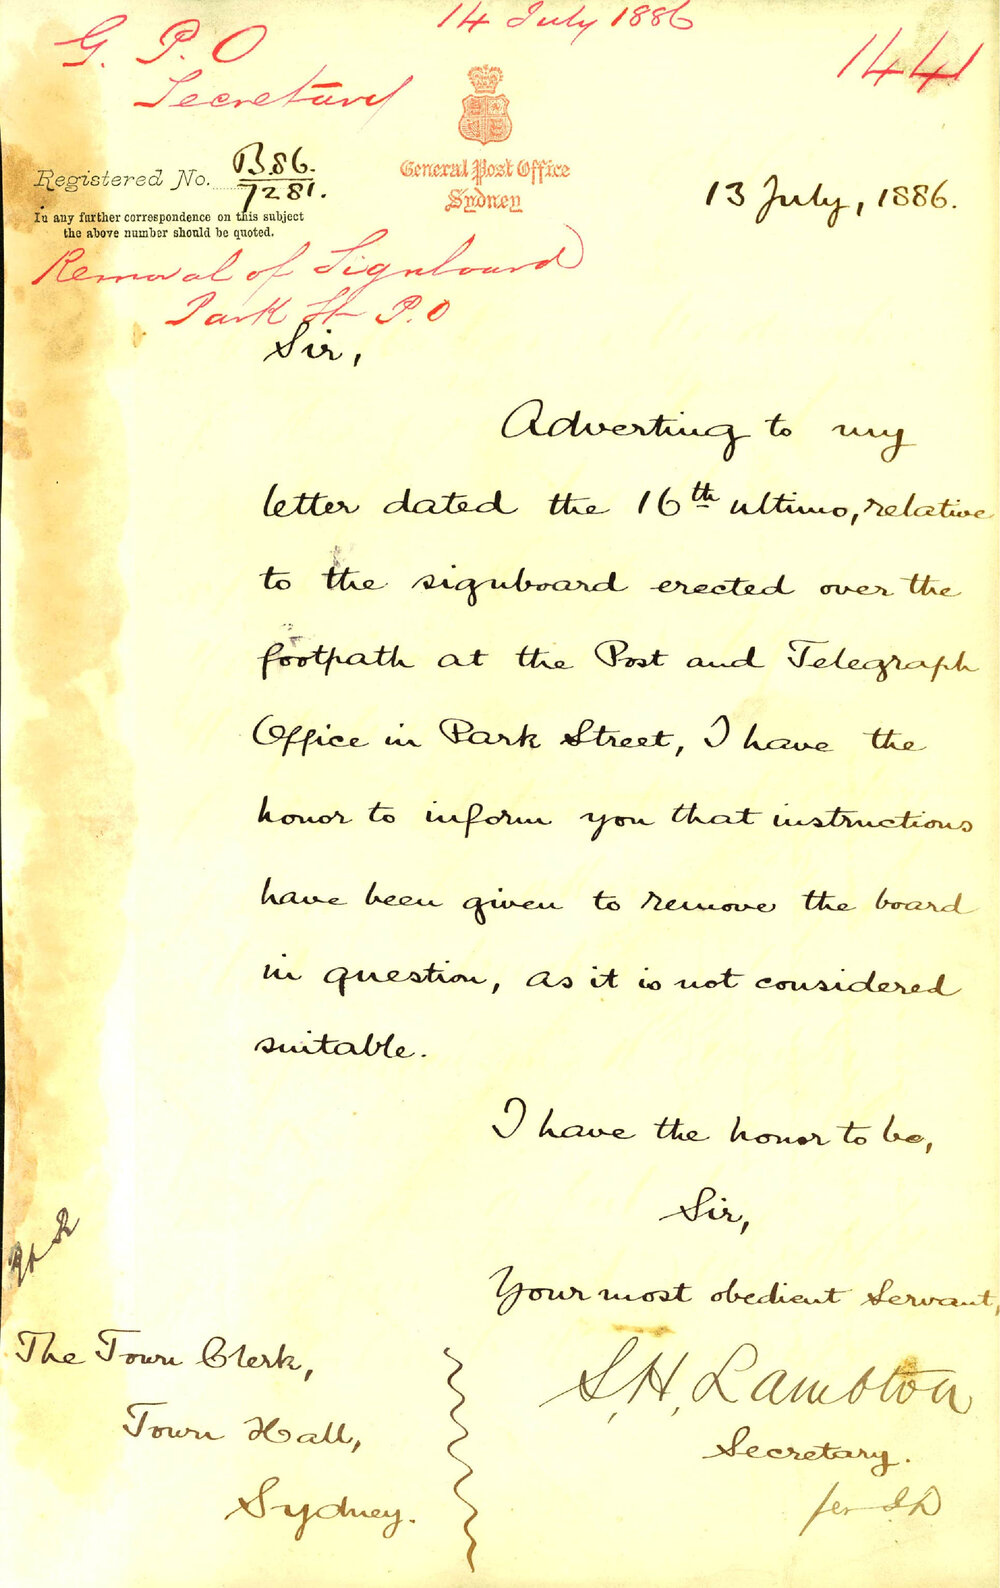 14 July 1886
G. P. O
Secretary
1441
General Post Office
Sydney
Registered No. B86.
7281.
In any further correspondence on this subject
the above number should be quoted.
13 July, 1886.
Removal of Signboard
Park St P.O
Sir,
Adverting to my
letter dated the 16th ultimo, relative
to the signboard erected over the
footpath at the Post and Telegraph
Office in Park Street, I have the
honor to inform you that instructions
have been given to remove the board
in question, as it is not considered
suitable.
I have the honor to be,
Sir,
Your most obedient Servant,
S. H. Lambton
Secretary.
per
The Town Clerk,
Town Hall,
Sydney.